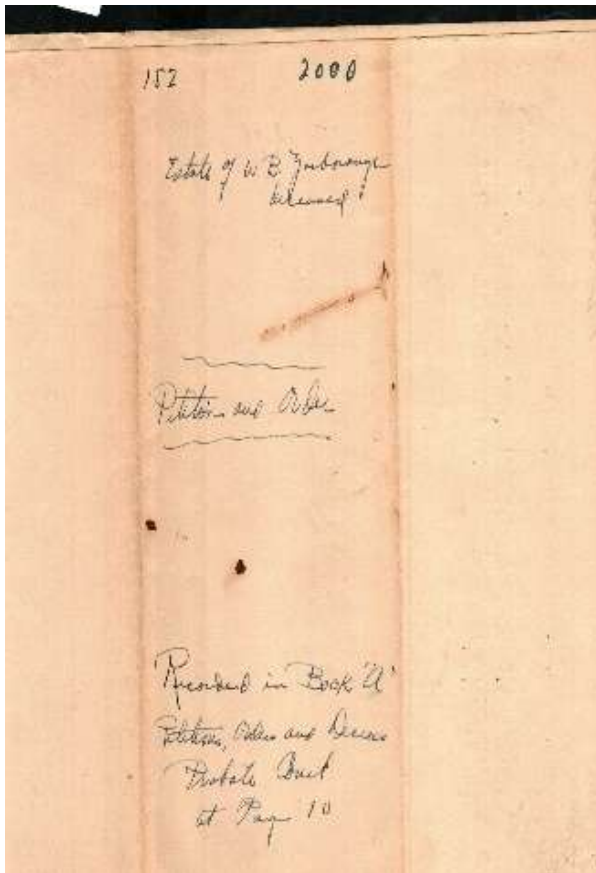 152 2000
Estate of W B Yarborough
deceased
Petition and Order
Recorded in Book "A"
Petitions, Orders and Decrees
Probate Court
at Page 10